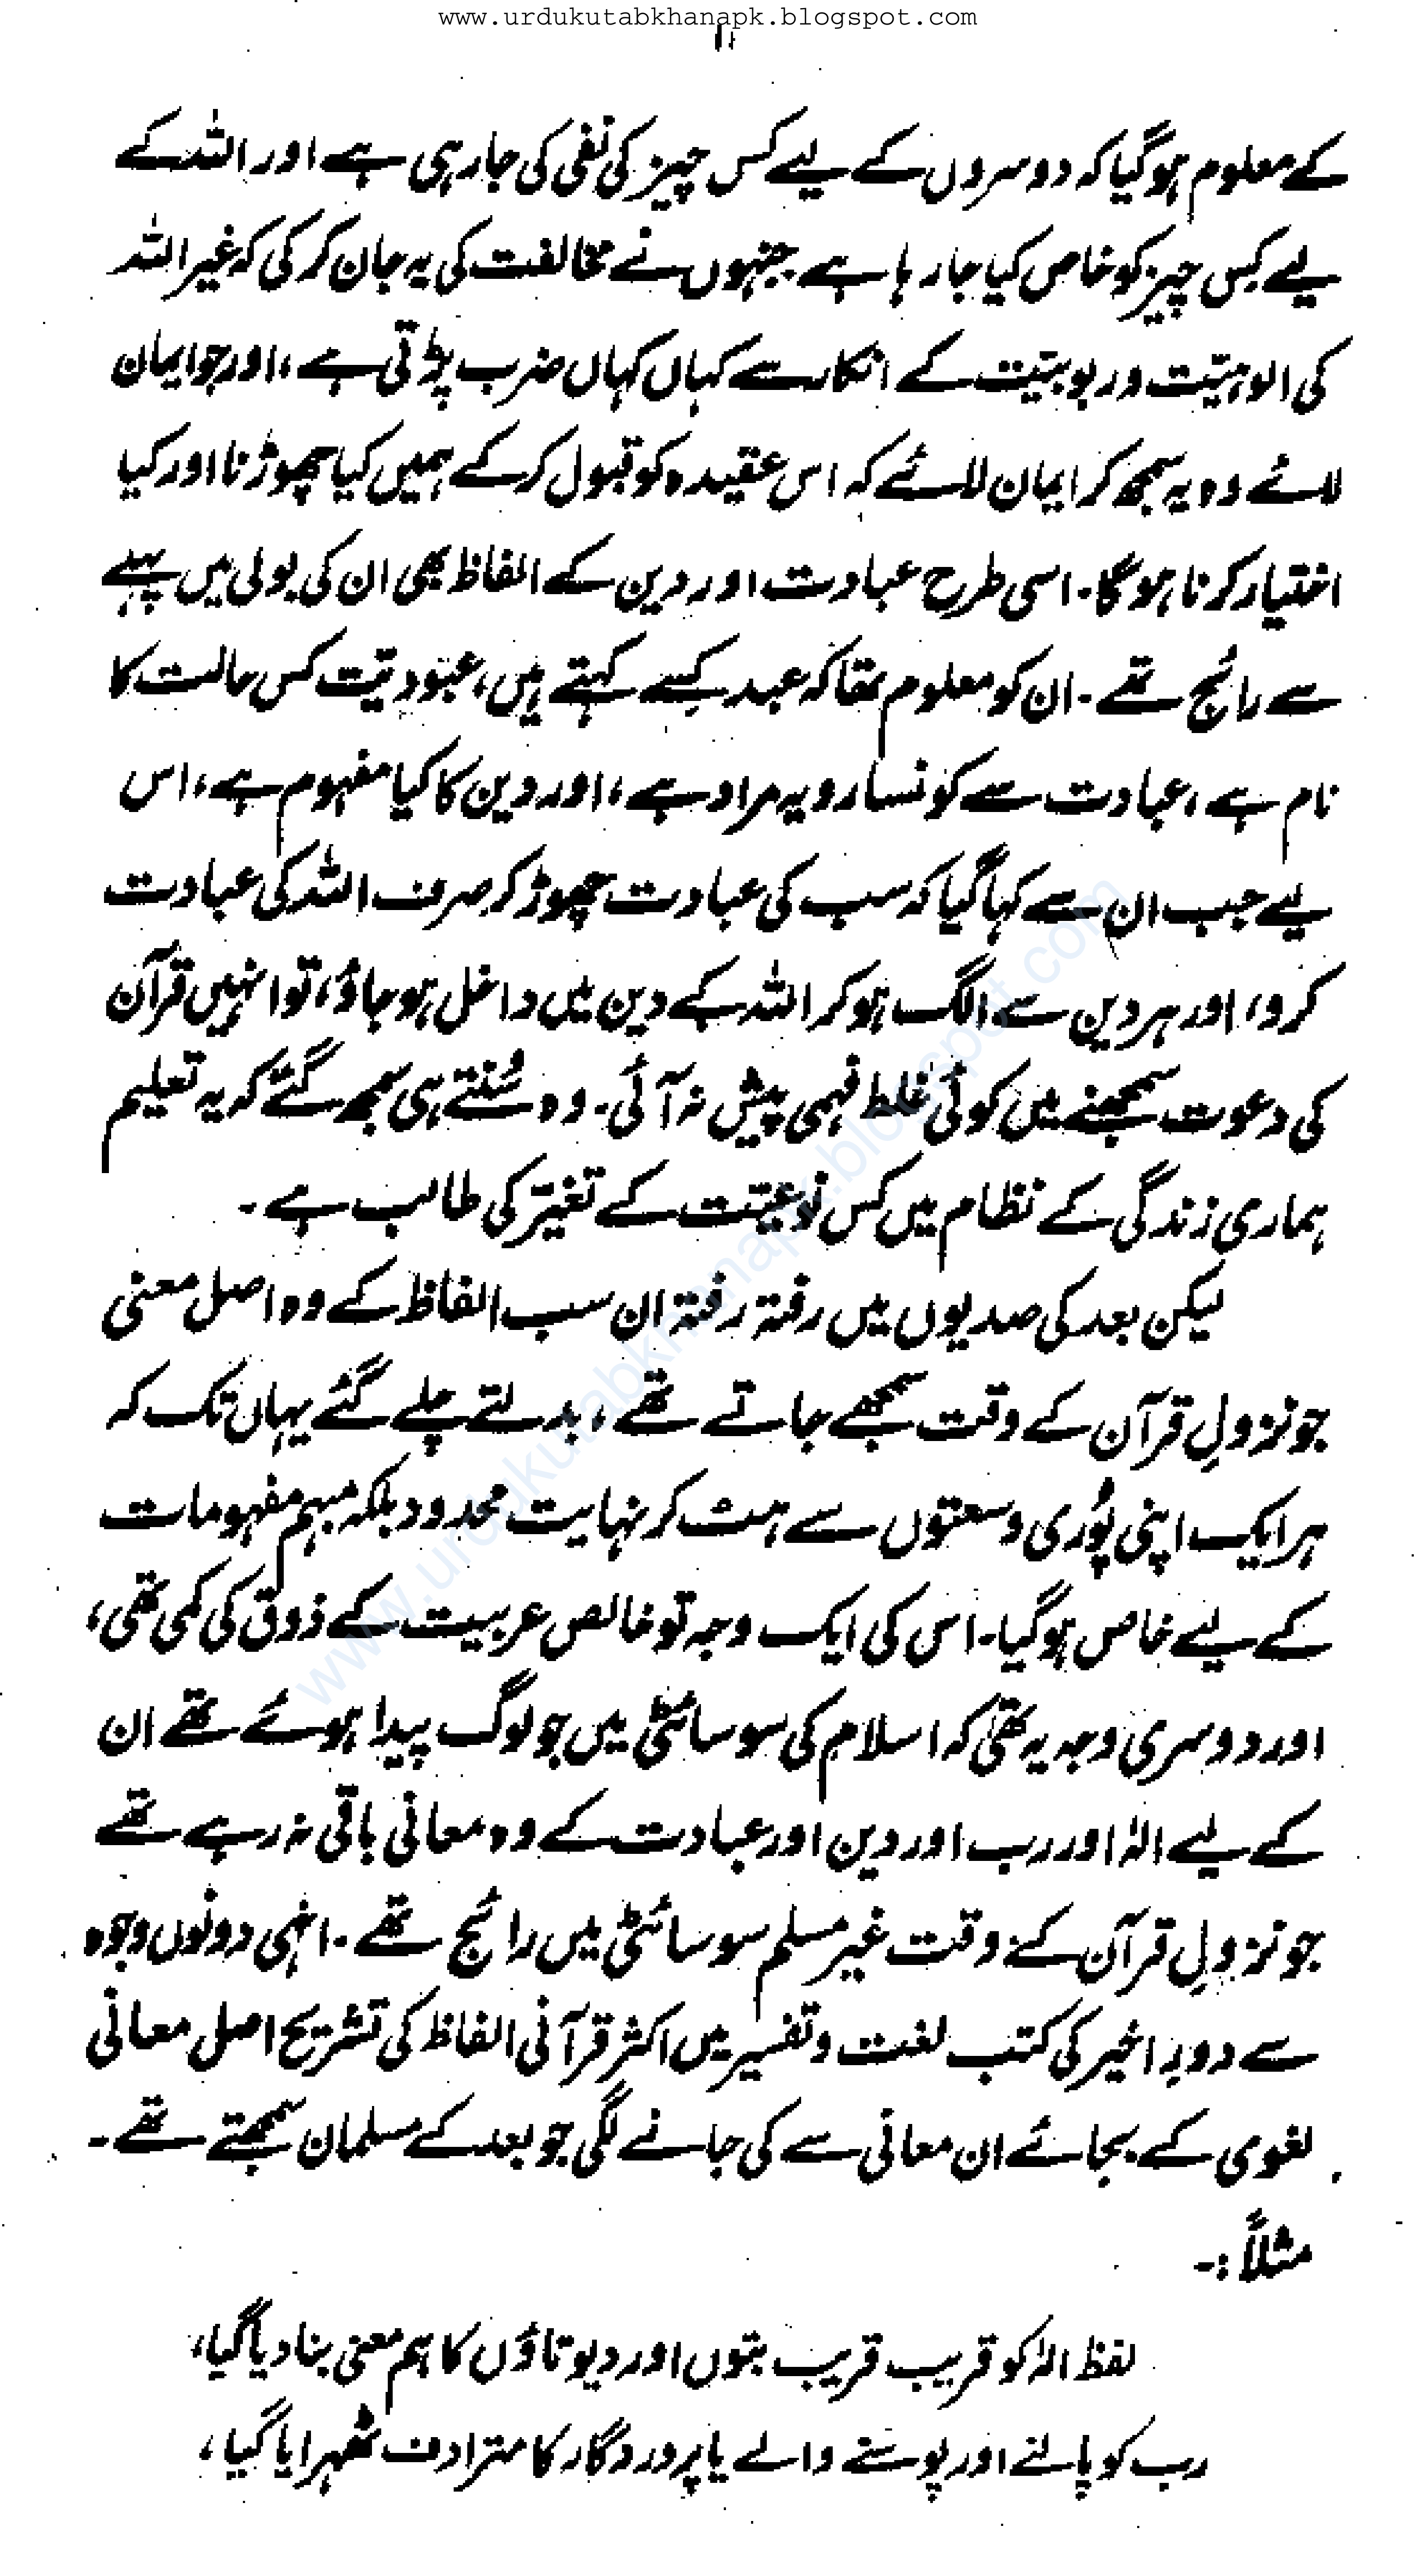 www.urdukutabkhanapk.blogspot.com
۱۱
کے معلوم ہوگیا کہ دوسروں کے لیے کس چیز کی نفی کی جارہی ہے اور اللہ کے
لیے کس چیز کو خاص کیا جارہا ہے جنہوں نے مخالفت کی یہ جان کر کی کہ غیر اللہ
کی الوہیّت و ربوبیّت کے انکار سے کہاں کہاں ضرب پڑتی ہے، اور جو ایمان
لائے وہ یہ سمجھ کر ایمان لائے کہ اس عقیدہ کو قبول کر کے ہمیں کیا چھوڑنا اور کیا
اختیار کرنا ہوگا۔ اسی طرح عبادت اور دین کے الفاظ بھی ان کی بولی میں پہلے
سے رائج تھے۔ ان کو معلوم تھا کہ عبد کسے کہتے ہیں، عبودیّت کس حالت کا
نام ہے، عبادت سے کونسا رویہ مراد ہے، اور دین کا کیا مفہوم ہے، اس
لیے جب ان سے کہا گیا کہ سب کی عبادت چھوڑ کر صرف اللہ کی عبادت
کرو، اور ہر دین سے الگ ہو کر اللہ کے دین میں داخل ہوجاؤ، تو انہیں قرآن
کی دعوت سمجھنے میں کوئی غلط فہمی پیش نہ آئی۔ وہ سُنتے ہی سمجھ گئے کہ یہ تعلیم
ہماری زندگی کے نظام میں کس نوعیّت کے تغیّر کی طالب ہے۔
لیکن بعد کی صدیوں میں رفتہ رفتہ ان سب الفاظ کے وہ اصل معنی
جو نزولِ قرآن کے وقت سمجھے جاتے تھے، بدلتے چلے گئے یہاں تک کہ
ہر ایک اپنی پُوری وسعتوں سے ہٹ کر نہایت محدود بلکہ مبہم مفہومات
کے لیے خاص ہوگیا۔ اس کی ایک وجہ تو خالص عربیت کے ذوق کی کمی تھی،
اور دوسری وجہ یہ تھی کہ اسلام کی سوسائٹی میں جو لوگ پیدا ہوئے تھے ان
کے لیے الٰہ اور رب اور دین اور عبادت کے وہ معانی باقی نہ رہے تھے
جو نزولِ قرآن کے وقت غیر مسلم سوسائٹی میں رائج تھے۔ انہی دونوں وجوہ
سے دورِ اخیر کی کتب لغت و تفسیر میں اکثر قرآنی الفاظ کی تشریح اصل معانی
لغوی کے بجائے ان معانی سے کی جانے لگی جو بعد کے مسلمان سمجھتے تھے۔
مثلاً:-
لفظ الٰہ کو قریب قریب بتوں اور دیوتاؤں کا ہم معنی بنادیا گیا،
رب کو پالنے اور پوسنے والے یا پروردگار کا مترادف ٹھہرایا گیا،
www.urdukutabkhanapk.blogspot.com